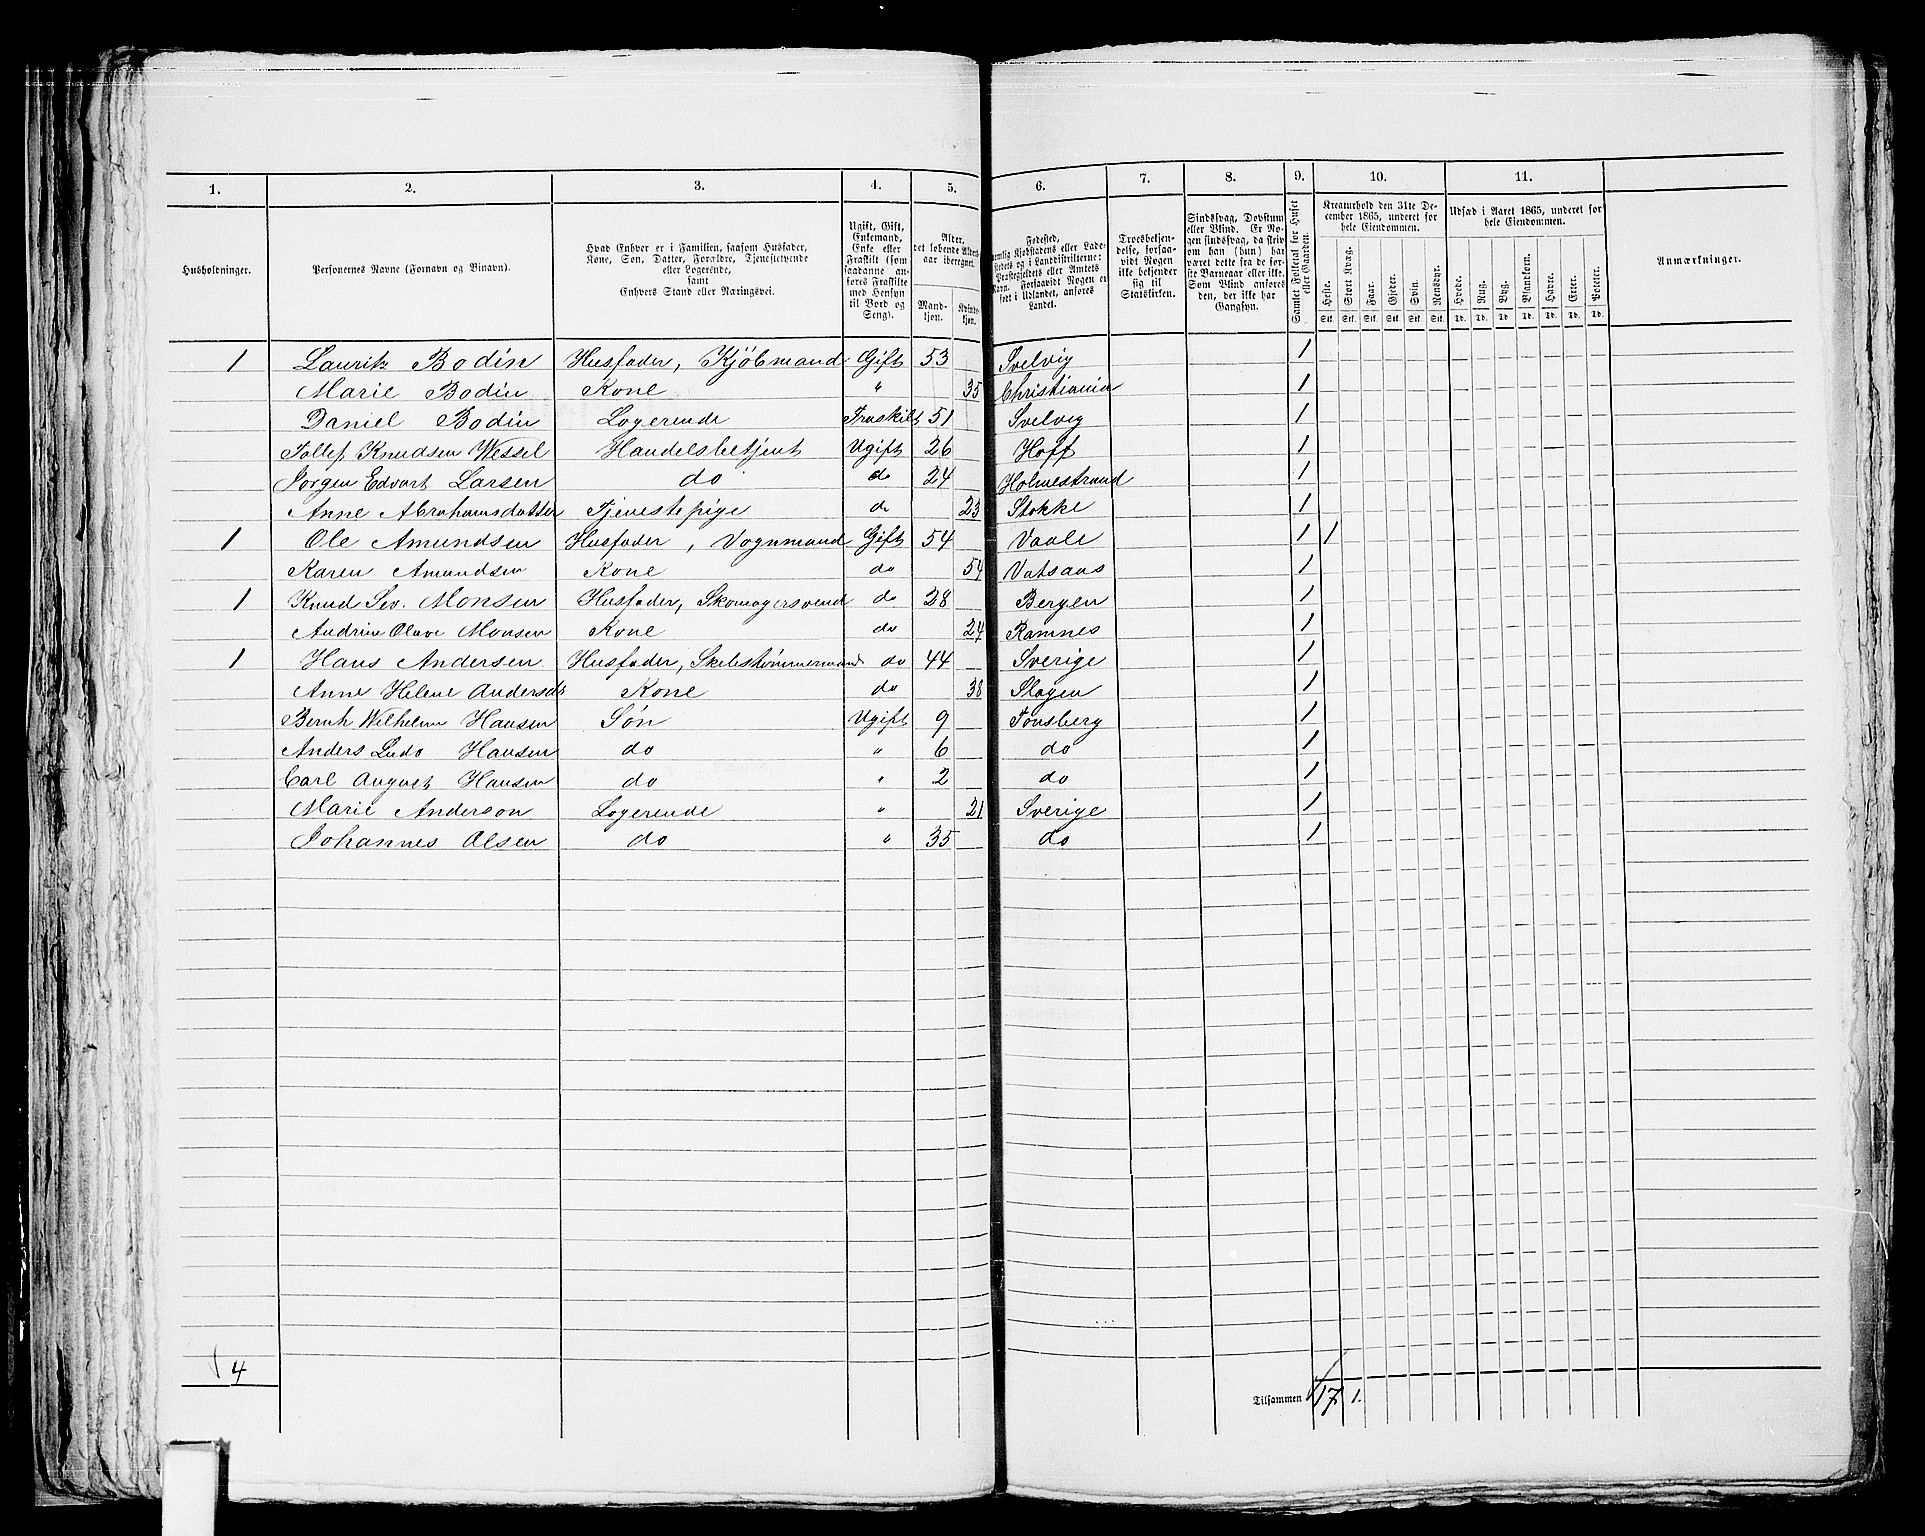 1. 2. 3. 4. 5. 6. 7. 8. 9. 10. 11.
Husholdninger.
Personernes Navne (Fornavn og Tilnavn).
Hvad Enhver er i Familien, saasom Husfader,
Kone, Søn, Datter, Forældre, Tjenestetyende
eller Logerende,
samt
Enhvers Stand eller Næringsvei.
Ugift, Gift,
Enkemand,
Enke eller
Fraskilt (som
saadanne an-
føres Fraskilte
med Hensyn
til Bord og
Seng).
Alder,
det løbende Alders-
aar iberegnet.
Mand-
kjøn.
Kvinde-
kjøn.
Fødested,
nemlig Kjøbstadens eller Lade-
stedets og i Landdistrikterne:
Præstegjeldets eller Amtets
Navn. Forsaavidt Nogen er
født i Udlandet, anføres
Landet.
Troesbekjen-
delse, forsaa-
vidt Nogen
ikke bekjender
sig til
Statskirken.
Sindssvag, Døvstum
eller Blind. Er No-
gen sindssvag, da skriv
om han (hun) har
været dette fra de før-
ste Barneaar eller ikke.
Som Blind anføres
den, der ikke har
Gangsyn.
Samlet Folketal for Huset
eller Gaarden.
Kreaturhold den 31te De-
cember 1865, underet for
hele Eiendommen.
Heste. Stort Kvæg. Faar. Gjeder. Svin. Rensdyr.
Stk. Stk. Stk. Stk. Stk. Stk.
Udsæd i Aaret 1865, underet for
hele Eiendommen.
Hvede. Rug. Byg. Blandkorn. Havre. Erter. Poteter.
Td. Td. Td. Td. Td. Td. Td.
Anmærkninger.
1 Lauritz Bodin Husfader, Kjöbmand Gift 53 Svelvig 1
Marie Bodin Kone " 35 Christiania 1
Daniel Bodin Logerende Fraskilt 51 Svelvig 1
Tollef Knudsen Wessel Handelsbetjent Ugift 26 Hoff 1
Jörgen Edvart Larsen do do 24 Holmestrand 1
Anne Abrahamsdatter Tjenestepige do 23 Stokke 1
1 Ole Amundsen Husfader, Vognmand Gift 54 Vaale 1 1
Karen Amundsen Kone do 54 Vatsaas 1
1 Knud Sev. Monsen Husfader, Skomagersvend do 28 Bergen 1
Andrine Olave Monsen Kone do 24 Ramnes 1
1 Hans Andersen Husfader, Skibstømmermand do 44 Sverige 1
Anne Helene Andersen Kone do 38 Slagen 1
Bernh Wilhelm Hansen Søn Ugift 9 Tønsberg 1
Anders Ludv Hansen do " 6 do 1
Carl August Hansen do " 2 do 1
Marie Anderson Logerende " 21 Sverige 1
Johannes Olsen do " 35 do 1
4 Tilsammen 17 1.